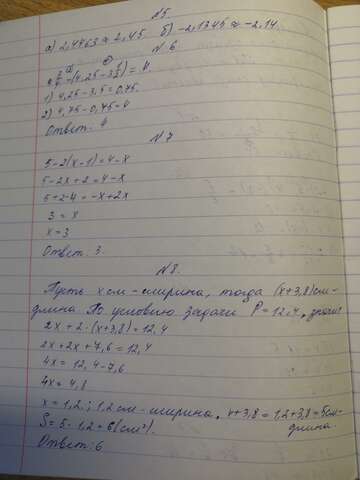 №5
а) 2,4463≈2,45 б) -2,1345≈-2,14.
№6
-(4,25-3
)=4.
1) 4,25-3,5=0,75.
2) 4,75-0,75=4
Ответ: 4
№7
5-2(x-1)=4-x
5-2x+2=4-x
5+2-4=-x+2x
3=x
x=3
Ответ: 3.
№8.
Пусть x см-ширина, тогда (x+3,8)см-
длина. По условию задачи P=12,4, значит
2x+2·(x+3,8)=12,4
2x+2x+7,6=12,4
4x=12,4-7,6
4x=4,8
x=1,2.; 1,2см-ширина. x+3,8=1,2+3,8=5см-
длина
S=5·1,2=6(см²).
Ответ: 6